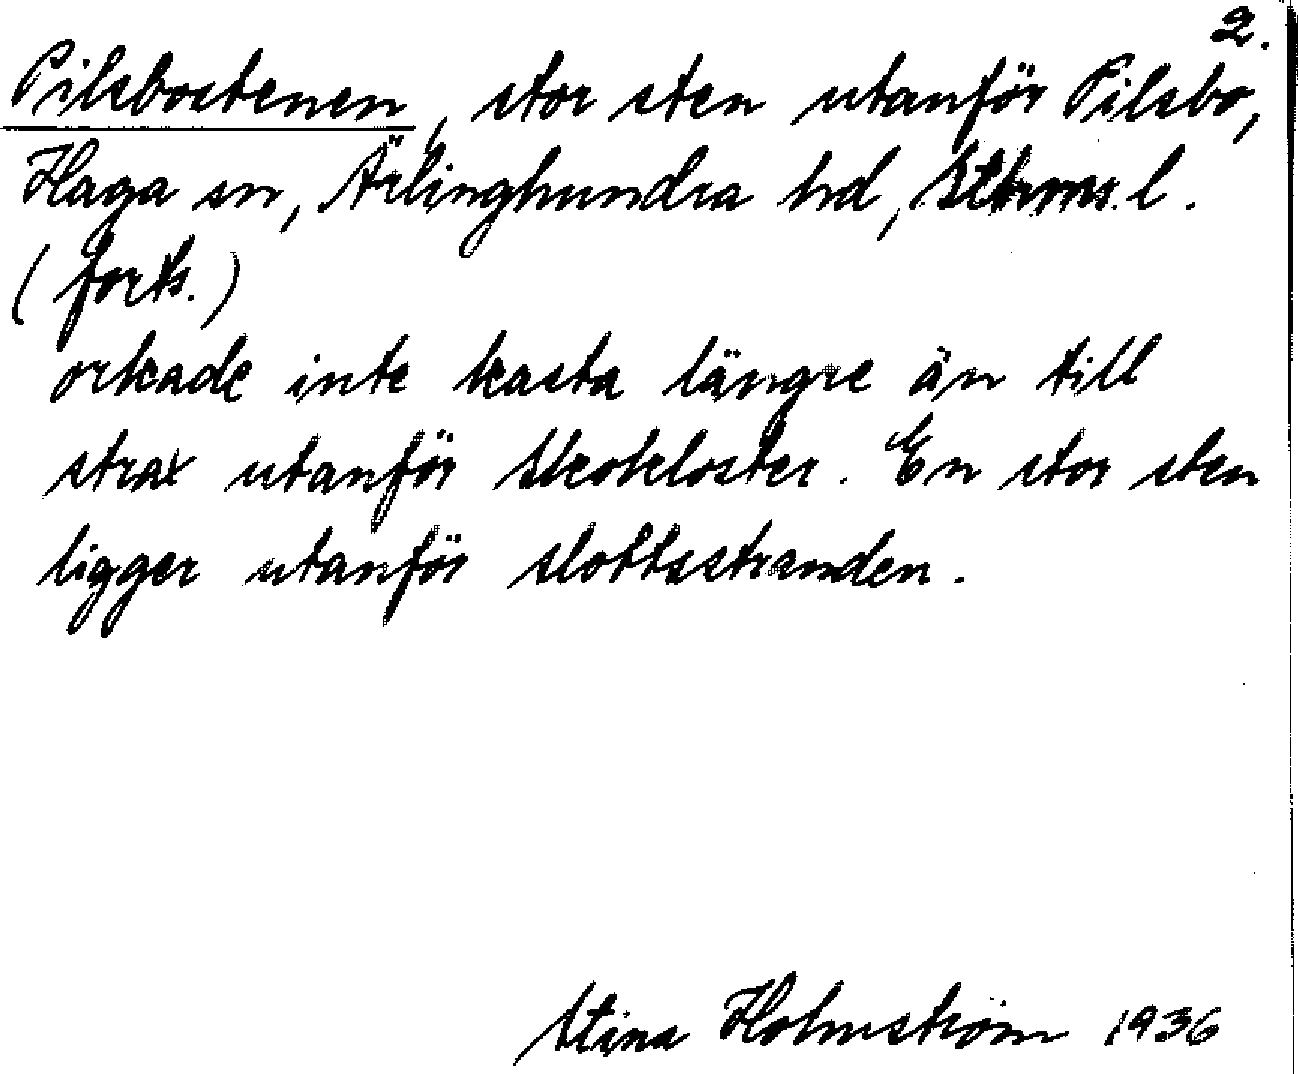 2.
Pilsbostenen, stor sten utanför Pilsbo,
Haga sn, Ärlinghundra hd, Sthms. l.
(forts.)
orkade inte kasta längre än till
strax utanför Skokloster. En stor sten
ligger utanför slottsstranden.
Stina Holmström 1936